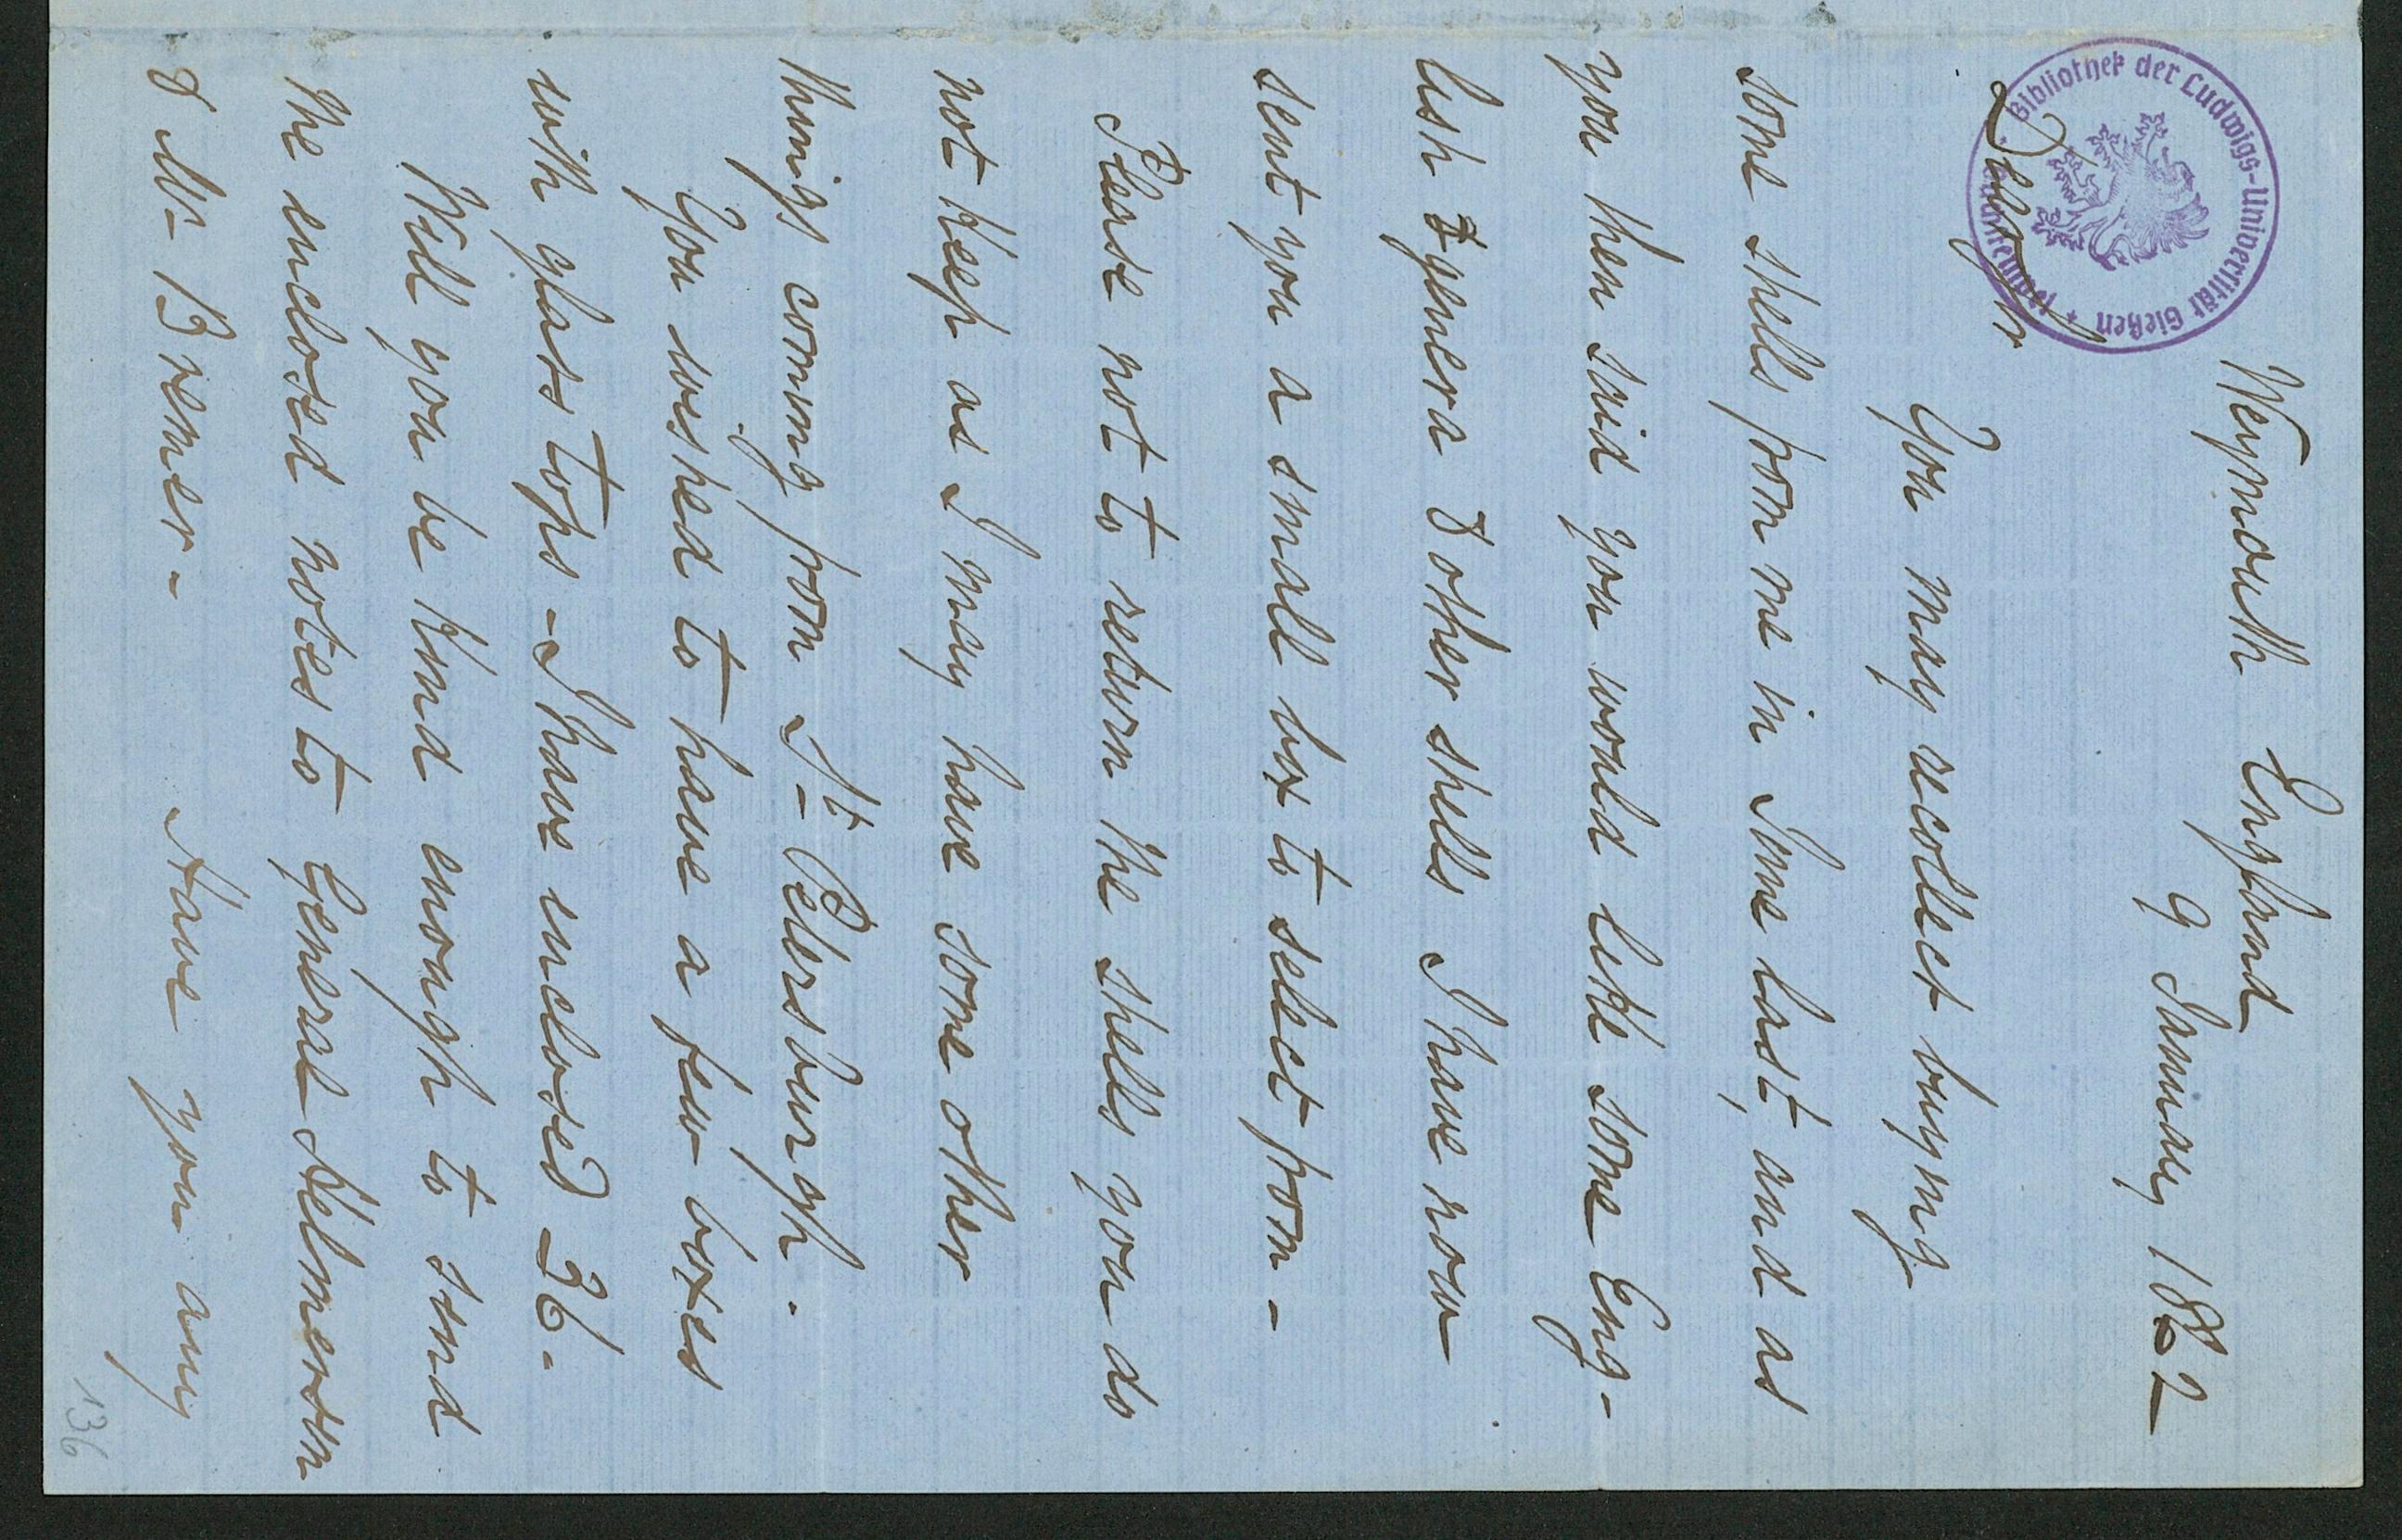 Weymouth England
9 January 1862
Dear Sir
You may recollect buying
some shells from me in June last, and as
you then said you would like some Eng-
lish genera & other shells I have now
sent you a small box to select from -
Please not to return the shells you do
not keep as I may have some other
things coming from St- Petersburgh -
You wished to have a few boxes
with glass tops - I have inclosed 36 -
Will you be kind enough to send
the enclosed notes to General Helmersen
& Mr- Bremer - Have you any
136
Bibliothek der Ludwigs-Universität Gießen